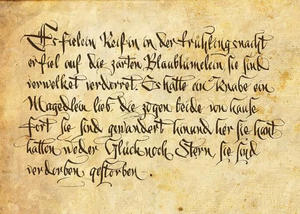 Es fiel ein Reif in in der frühlingsnacht
er fiel auf die zarten Blaublümelein sie sind
verwelket verdorret. Es hatte ein Knabe ein
Magedlein lieb. die zogen beide von hause
fort sie sind gewandert hin und her sie haut
hatten weder Glück noch Stern sie sind
verdorben gestorben.